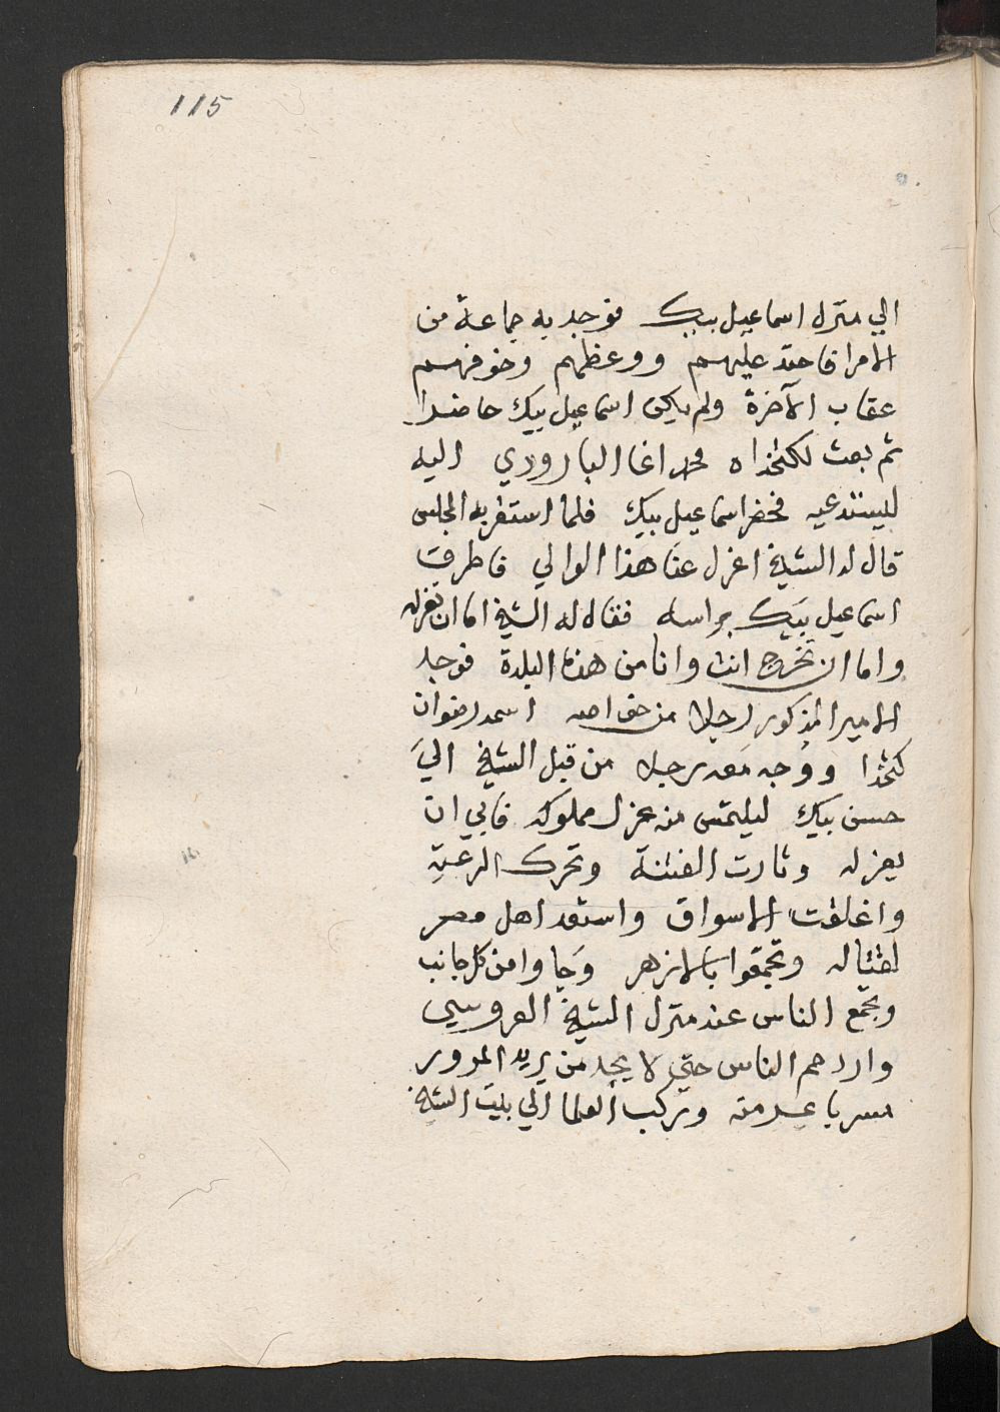 115
الي منزل اسماعيل بيك فوجد به جماعة من
الامرا فاحتد عليهم ووعظهم وخوفهم
عقاب الآخرة ولم يكن اسماعيل بيك حاضرا
ثم بعث لكتخداه محمد اغا البارودي اليه
ليستدعيه فحضر اسماعيل بيك فلما استقر به المجلس
قال له الشيخ اعزل عنا هذا الوالي فاطرق
اسماعيل بيك براسه فقال له الشيخ اما ان تعزله
واما ان تخرج انت وانا من هذه البلدة فوجد
الامير المذكور رجلا من خواصه اسمه رضوان
كتخدا ووجه معه رجلا من قبل الشيخ الي
حسن بيك ليلتمس منه عزل مملوكه فابي ان
يعزله وثارت الفتنة وتحرك الرعية
واغلقت الاسواق واستعد اهل مصر
لقتاله وتجمعوا بالازهر وجاوا من كل جانب
وتجمع الناس عند منزل الشيخ العروسي
وازدحم الناس حتي لا يجد من يريد المرور
وتركب العلما الي بيت الشيخ